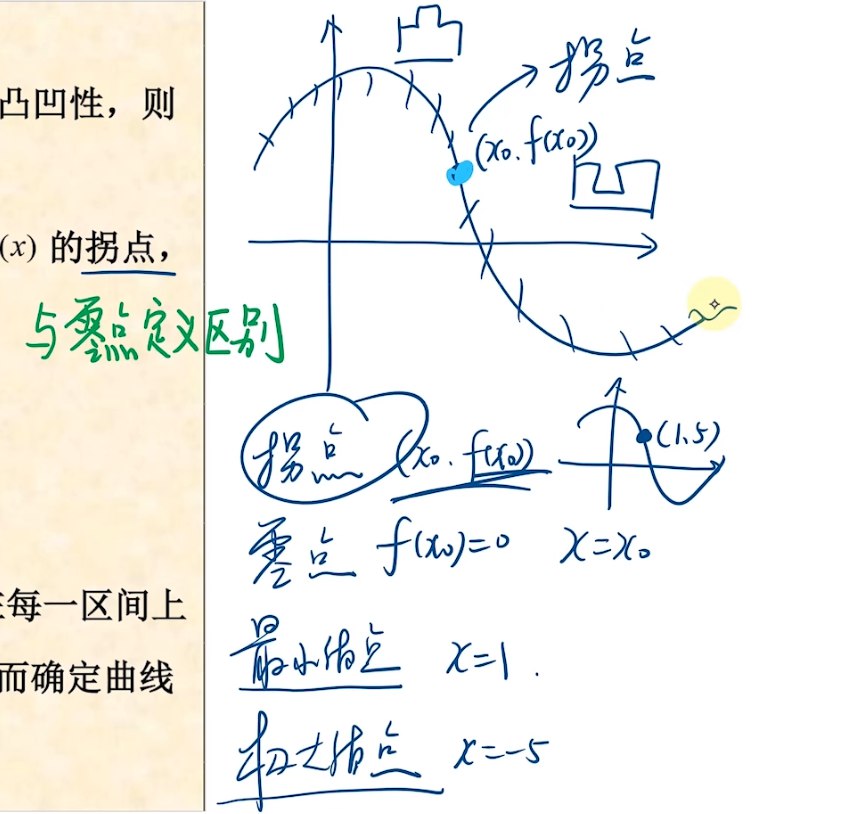 凸凹性，则
(x) 的拐点，
与零点定义区别
在每一区间上
而确定曲线
凸
拐点
(x₀, f(x₀))
凹
拐点 (x₀, f(x₀))
(1,5)
零点 f(x₀)=0 x=x₀
最小值点 x=1.
极大值点 x=-5